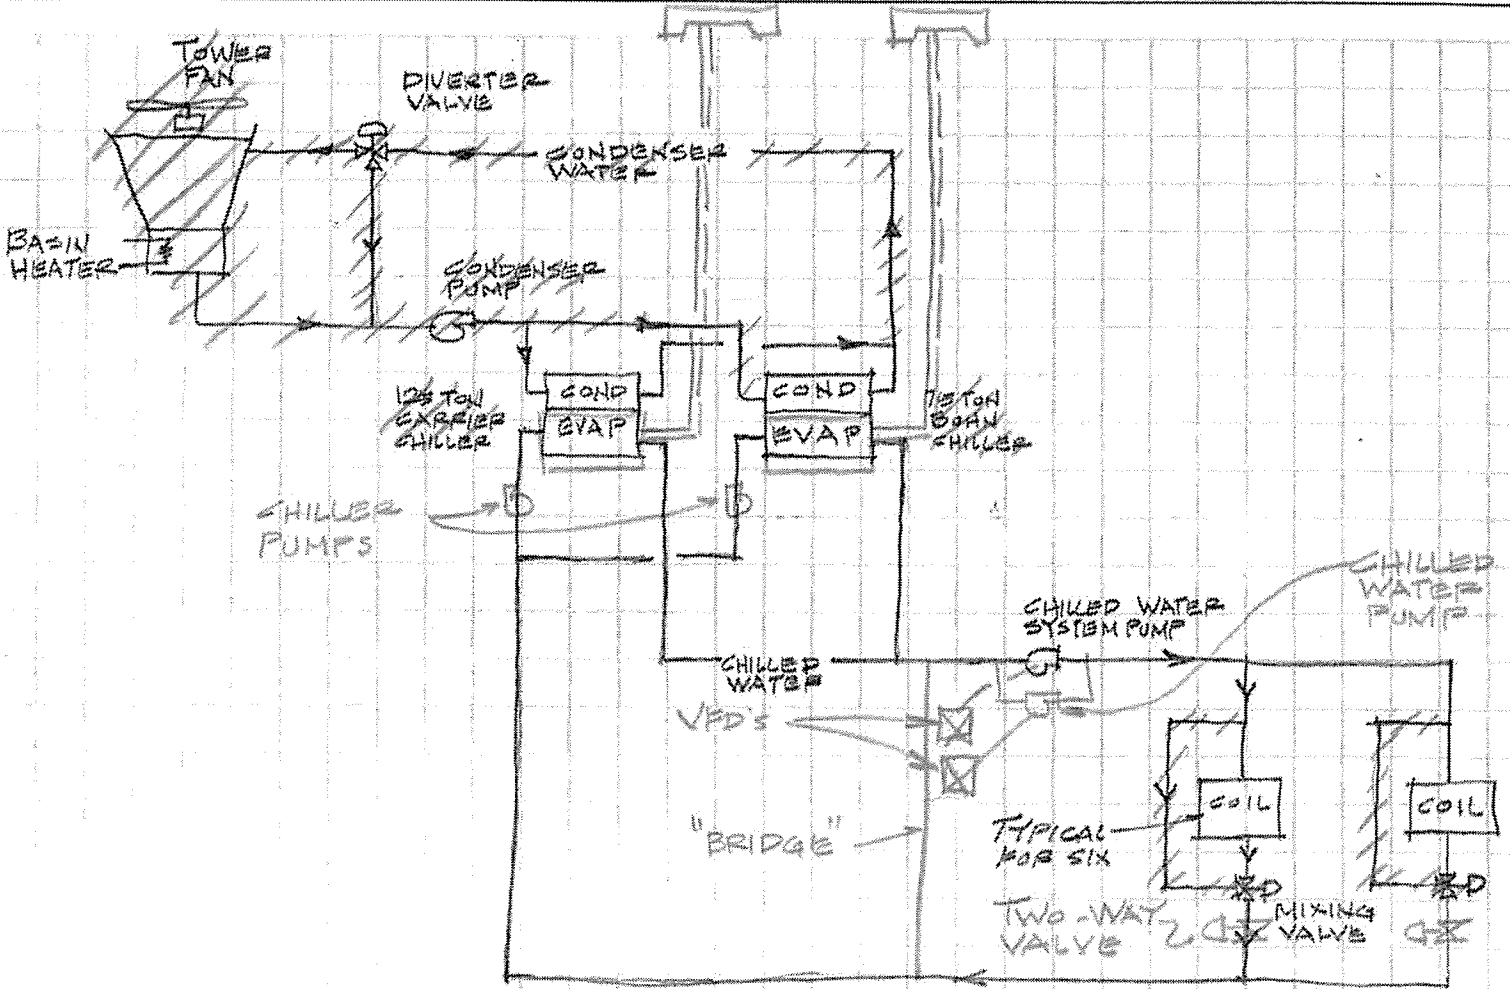 TOWER
FAN
DIVERTER
VALVE
CONDENSER
WATER
BASIN
HEATER
CONDENSER
PUMP
125 TON
CARRIER
CHILLER
COND
EVAP
COND
EVAP
75 TON
BOHN
CHILLER
CHILLER
PUMPS
CHILLED
WATER
PUMP
CHILLED WATER
SYSTEM PUMP
CHILLED
WATER
VFD'S
"BRIDGE"
COIL
COIL
TYPICAL
FOR SIX
TWO-WAY
VALVE
MIXING
VALVE